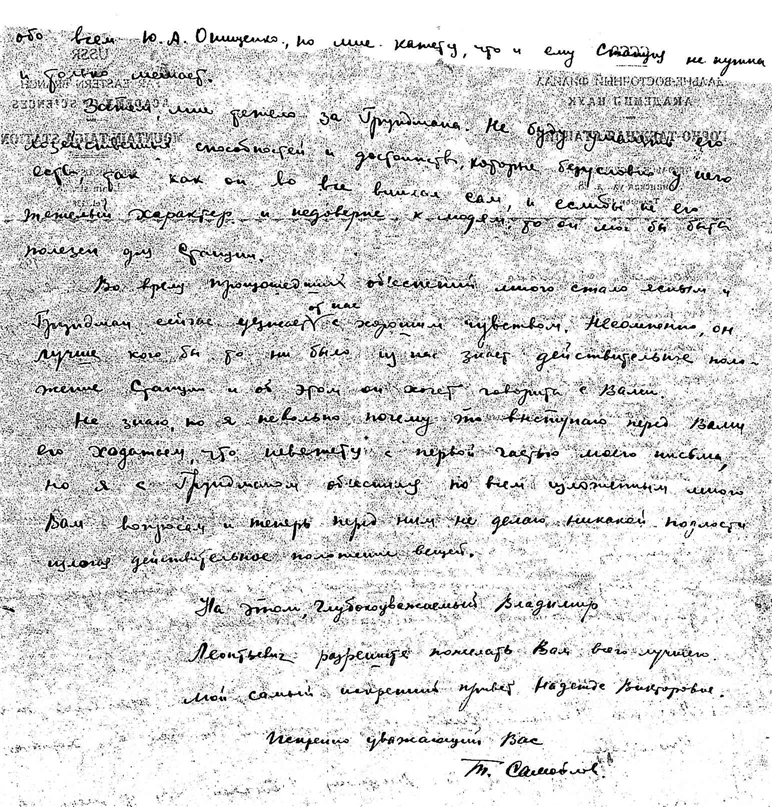 обо всем Ю.А. Онищенко, но мне кажется, что и ему Станция не нужна
и только мешает.
Затем, мне тяжело за Грундмана. Не буду умалять его
хозяйственных способностей и достоинств, которые безусловно у него
есть, так как он во все вникал сам, и если бы не его
тяжелый характер и недоверие к людям, то он мог бы быть
полезен для Станции.
Во время прошедших об'яснений много стало ясным и
от нас
Грундман сейчас уезжает с хорошим чувством. Несомненно, он
лучше кого бы то ни было из нас знает действительное поло-
жение Станции и об этом он хочет говорить с Вами.
Не знаю, но я невольно почему то выступаю перед Вами
его ходатаем, что не вяжется с первой частью моего письма,
но я с Грундманом об'яснился по всем изложенным мною
Вам вопросам и теперь перед ним не делаю никакой подлости
излагая действительное положение вещей.
На этом, глубокоуважаемый Владимир
Леонтьевич разрешите пожелать Вам всего лучшего.
Мой самый искренний привет Надежде Викторовне.
Искренно уважающий Вас
Т. Самойлов.
USSR
FAR EASTERN BRANCH
ACADEMY SCIENCES
MOUNTAIN-TAIGA STATION
СССР
ДАЛЬНЕ-ВОСТОЧНЫЙ ФИЛИАЛ
АКАДЕМИЙ НАУК
ГОРНО-ТАЕЖНАЯ СТАНЦИЯ